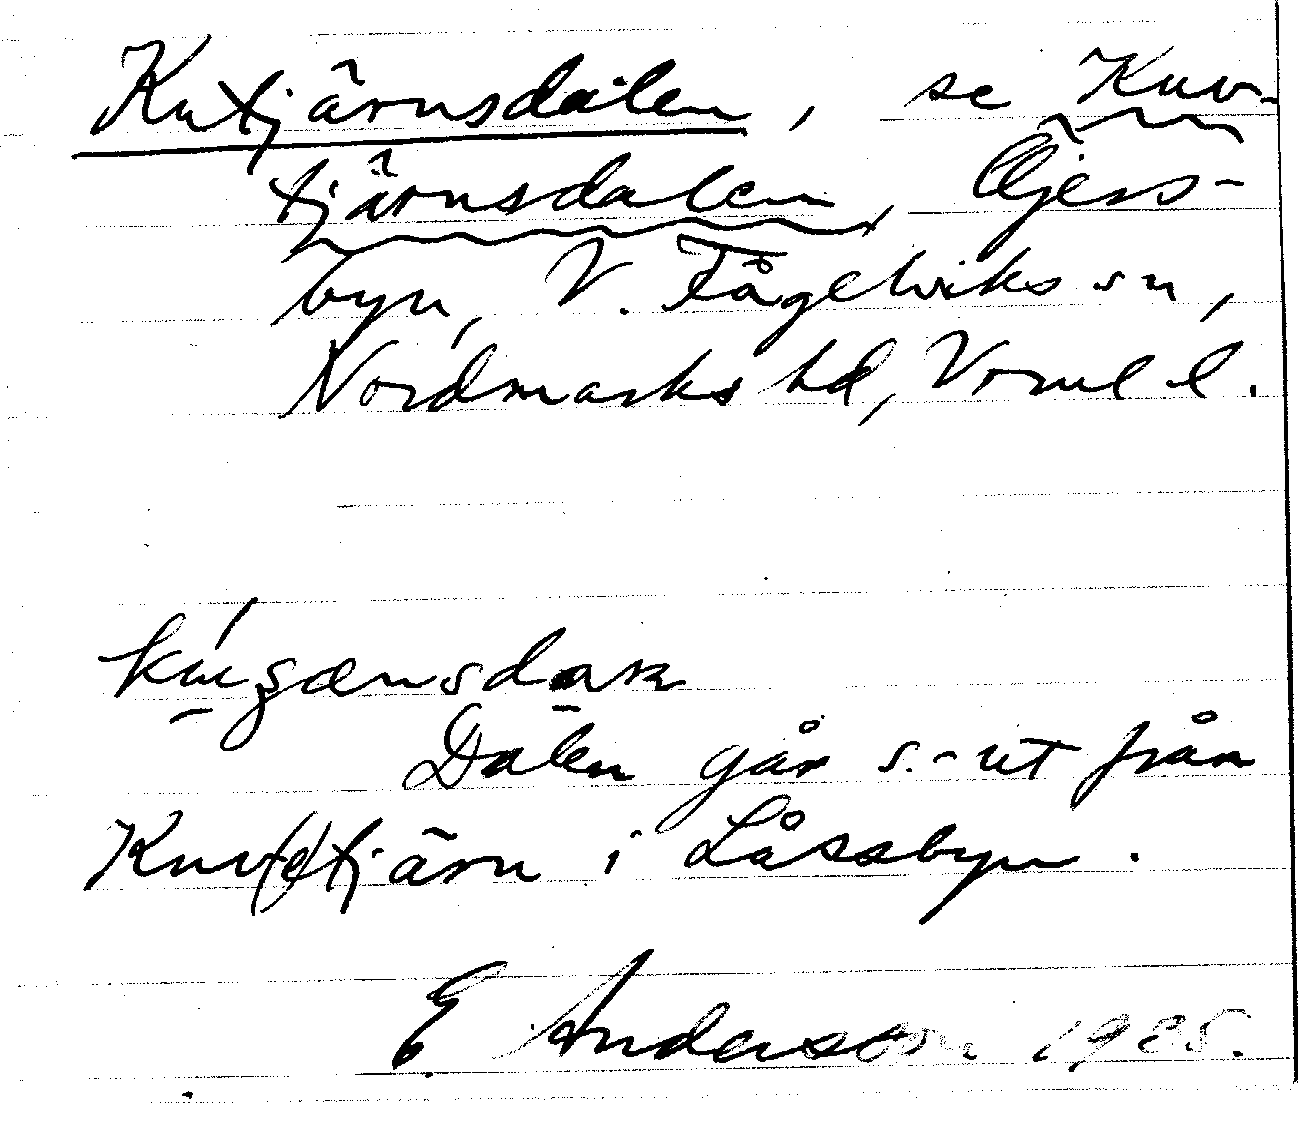 Kutjärnsdalen, se Kuv-
tjärnsdalen, Öjens-
byn, V. Fågelviks sn,
Nordmarks hd, Vrml l.
Dalen går s.-ut från
Kuv(e)tjärn i Låssbyn.
E. Andersson 1925.